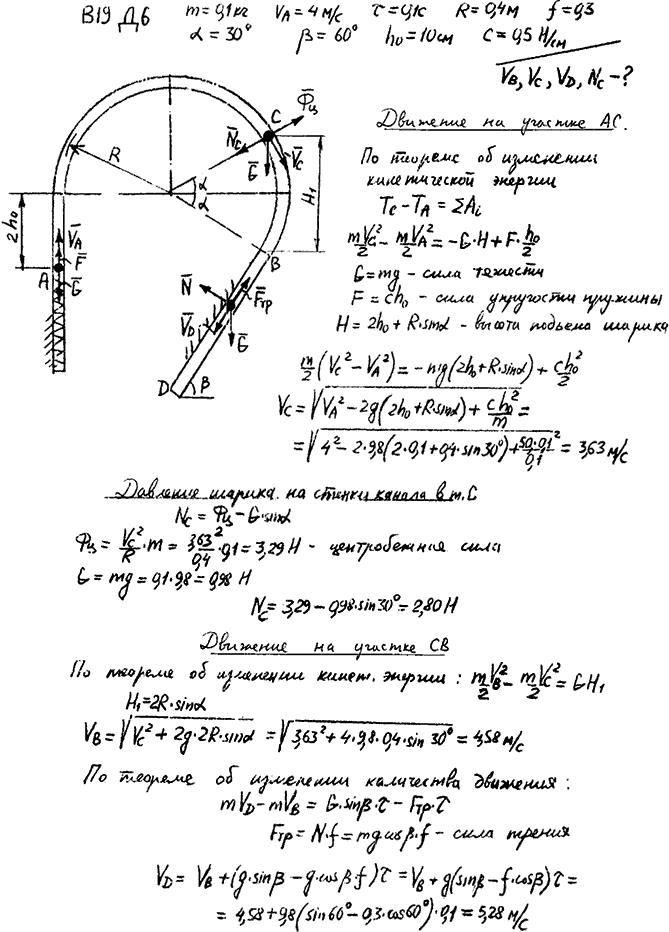 В19 Д6 m=0,1кг V_A=4 м/с τ=0,1с R=0,4м f=0,3
α=30° β=60° h₀=10см c=0,5 Н/см
V_B, V_C, V_D, N_C-?
Движение на участке АС.
По теореме об изменении
кинетической энергии
T_C - T_A = ΣA_i
mV_C²/2 - mV_A²/2 = -G·H + F·h₀/2
G=mg - сила тяжести
F = ch₀ - сила упругости пружины
H = 2h₀ + R·sinα - высота подъема шарика
m/2 (V_C² - V_A²) = -mg(2h₀+R·sinα) + ch₀²/2
V_C = √(V_A² - 2g(2h₀+R·sinα) + ch₀²/m) =
= √(4² - 2·9,8(2·0,1+0,4·sin30°) + 50·0,1²/0,1) = 3,63 м/с
2h₀
V̄_A
F̄
A
Ḡ
R
α
α
C
Φ̄ц
N̄_C
V̄_C
Ḡ
H₁
B
N̄
F̄тр
V̄_D
Ḡ
D
β
Давление шарика на стенки канала в т. С
N_C = Φц - G·sinα
Φц = V_C²/R·m = 3,63²/0,4·0,1 = 3,29 Н - центробежная сила
G = mg = 0,1·9,8 = 0,98 Н
N_C = 3,29 - 0,98·sin30° = 2,80 Н
Движение на участке СВ
По теореме об изменении кинет. энергии: mV_B²/2 - mV_C²/2 = GH₁
H₁=2R·sinα
V_B = √(V_C² + 2g·2R·sinα) = √(3,63² + 4·9,8·0,4·sin 30°) = 4,58 м/с
По теореме об изменении количества движения:
mV_D - mV_B = G·sinβ·τ - Fтр·τ
Fтр = N·f = mg cosβ·f - сила трения
V_D = V_B + (g·sinβ - g·cosβ·f)τ = V_B + g(sinβ - f·cosβ)τ =
= 4,58+9,8(sin60° - 0,3·cos60°)·0,1 = 5,28 м/с